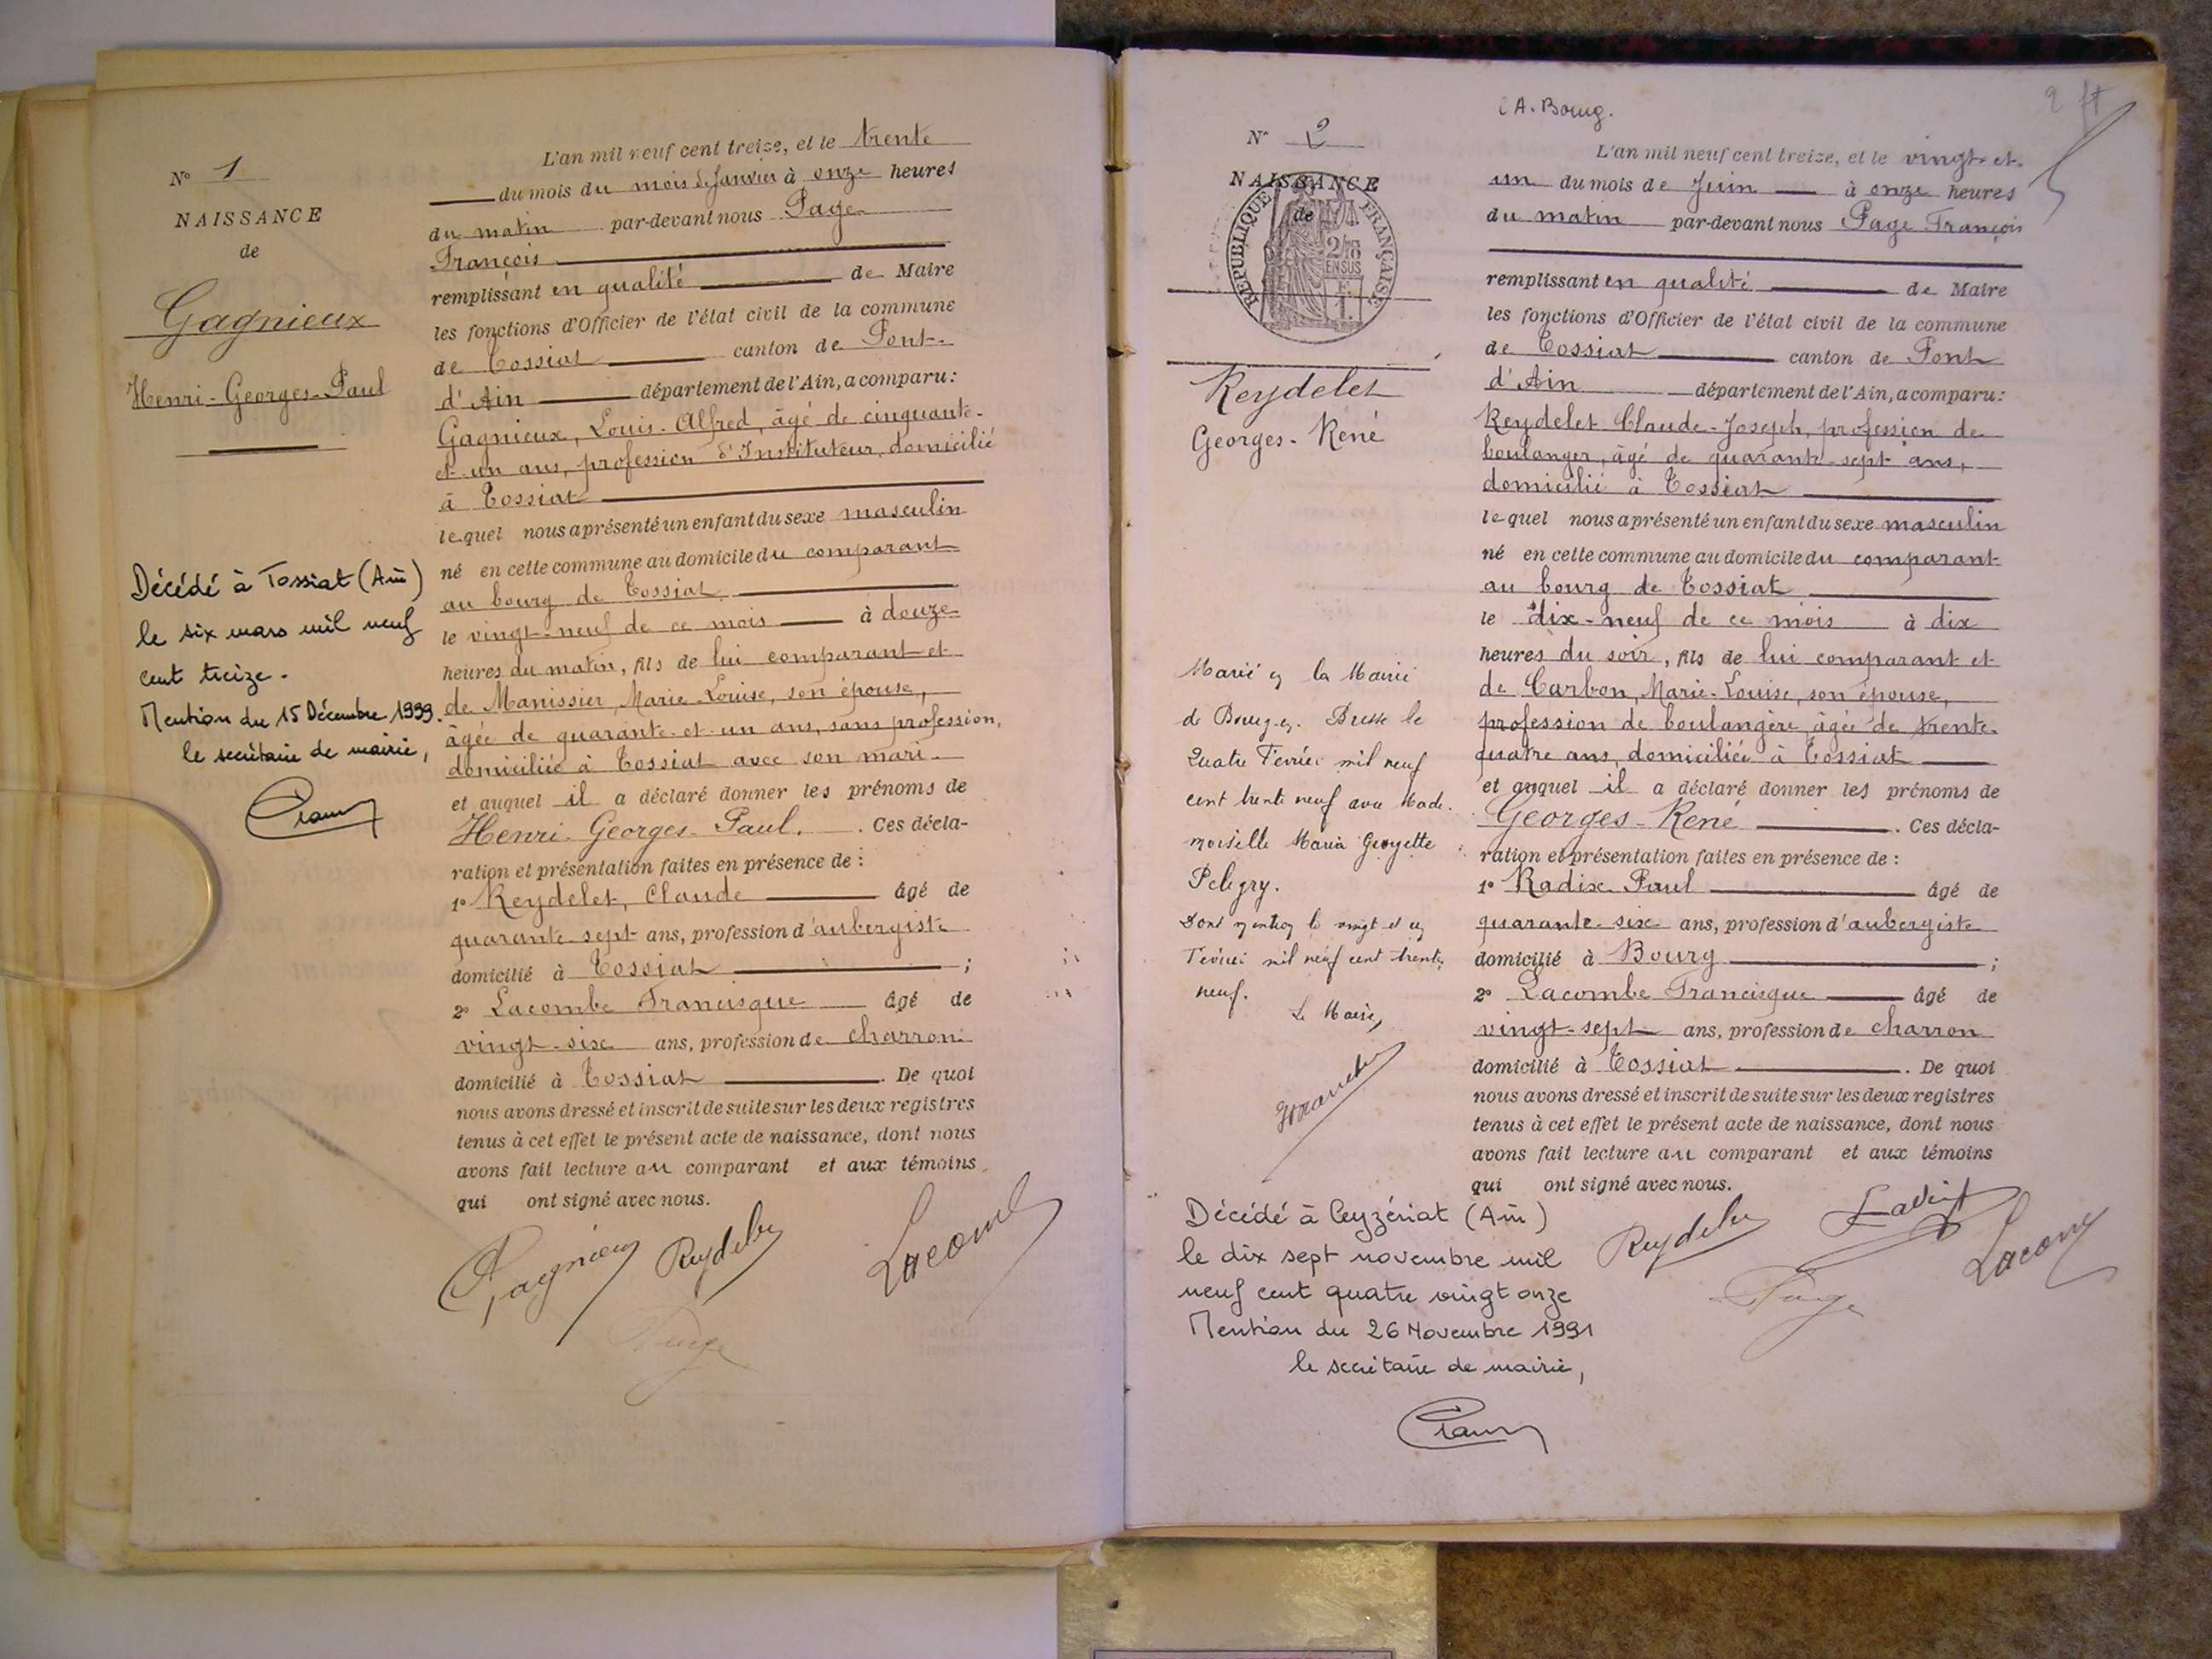 N° 1
NAISSANCE
de
Gagnieux
Henri-Georges-Paul
Décédé à Tossiat (Ain)
le six mars mil neuf
cent treize.
Mention du 15 Décembre 1999.
le secrétaire de mairie,
L'an mil neuf cent treize, et le trente
du mois du mois de Janvier à onze heures
du matin par-devant nous Page
François
remplissant en qualité de Maire
les fonctions d'Officier de l'état civil de la commune
de Tossiat canton de Pont-
d'Ain département de l'Ain, a comparu:
Gagnieux, Louis-Alfred, âgé de cinquante-
et-un ans, profession d'Instituteur, domicilié
à Tossiat
lequel nous a présenté un enfant du sexe masculin
né en cette commune au domicile du comparant
au bourg de Tossiat
le vingt-neuf de ce mois à douze
heures du matin, fils de lui comparant et
de Manissier, Marie-Louise, son épouse,
âgée de quarante-et-un ans, sans profession,
domiciliée à Tossiat avec son mari
et auquel il a déclaré donner les prénoms de
Henri-Georges-Paul. . Ces décla-
ration et présentation faites en présence de :
1° Reydelet, Claude âgé de
quarante-sept ans, profession d'aubergiste
domicilié à Tossiat ;
2° Lacombe Francisque âgé de
vingt-six ans, profession de charron
domicilié à Tossiat . De quoi
nous avons dressé et inscrit de suite sur les deux registres
tenus à cet effet le présent acte de naissance, dont nous
avons fait lecture au comparant et aux témoins
qui ont signé avec nous.
Gagnieux Reydelet Lacombe
Page
2
C A. Bourg.
N° 2
NAISSANCE
de
REPUBLIQUE FRANÇAISE
Reydelet
Georges-René
Marié en la Mairie
de Bourg-en-Bresse le
Quatre Février mil neuf
cent trente neuf avec Made-
moiselle Maria Georgette
Peligry.
Dont mention le vingt et un
Février mil neuf cent trente
neuf.
Le Maire,
Décédé à Ceyzériat (Ain)
le dix sept novembre mil
neuf cent quatre vingt onze
Mention du 26 Novembre 1991
le secrétaire de mairie,
L'an mil neuf cent treize, et le vingt-et-
un du mois de Juin à onze heures
du matin par-devant nous Page François
remplissant en qualité de Maire
les fonctions d'Officier de l'état civil de la commune
de Tossiat canton de Pont
d'Ain département de l'Ain, a comparu:
Reydelet Claude-Joseph, profession de
boulanger, âgé de quarante-sept ans,
domicilié à Tossiat
lequel nous a présenté un enfant du sexe masculin
né en cette commune au domicile du comparant
au bourg de Tossiat
le dix-neuf de ce mois à dix
heures du soir, fils de lui comparant et
de Carbon, Marie-Louise, son épouse,
profession de boulangère, âgée de trente-
quatre ans, domiciliée à Tossiat
et auquel il a déclaré donner les prénoms de
Georges-René . Ces décla-
ration et présentation faites en présence de :
1° Radix Paul âgé de
quarante-six ans, profession d'aubergiste
domicilié à Bourg ;
2° Lacombe Francisque âgé de
vingt-sept ans, profession de charron
domicilié à Tossiat . De quoi
nous avons dressé et inscrit de suite sur les deux registres
tenus à cet effet le présent acte de naissance, dont nous
avons fait lecture au comparant et aux témoins
qui ont signé avec nous.
Reydelet Lacombe
Page